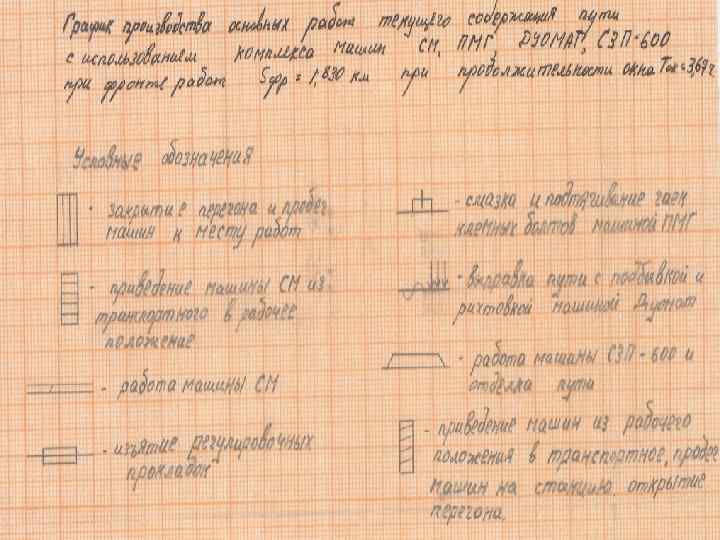 График производства основных работ текущего содержания пути
с использованием комплекса машин СМ, ПМГ, ДУОМАТ, СЗП-600
при фронте работ Sфр = 1,830 км при продолжительности окна Tок = 3,69 ч
Условные обозначения
- закрытие перегона и пробег
машин к месту работ
- приведение машины СМ из
транспортного в рабочее
положение
- работа машины СМ
- изъятие регулировочных
прокладок
- смазка и подтягивание гаек
клемных болтов машиной ПМГ
- выправка пути с подбывкой и
рихтовкой машиной Дуомат
- работа машины СЗП-600 и
отделка пути
- приведение машин из рабочего
положения в транспортное, пробег
машин на станцию, открытие
перегона.